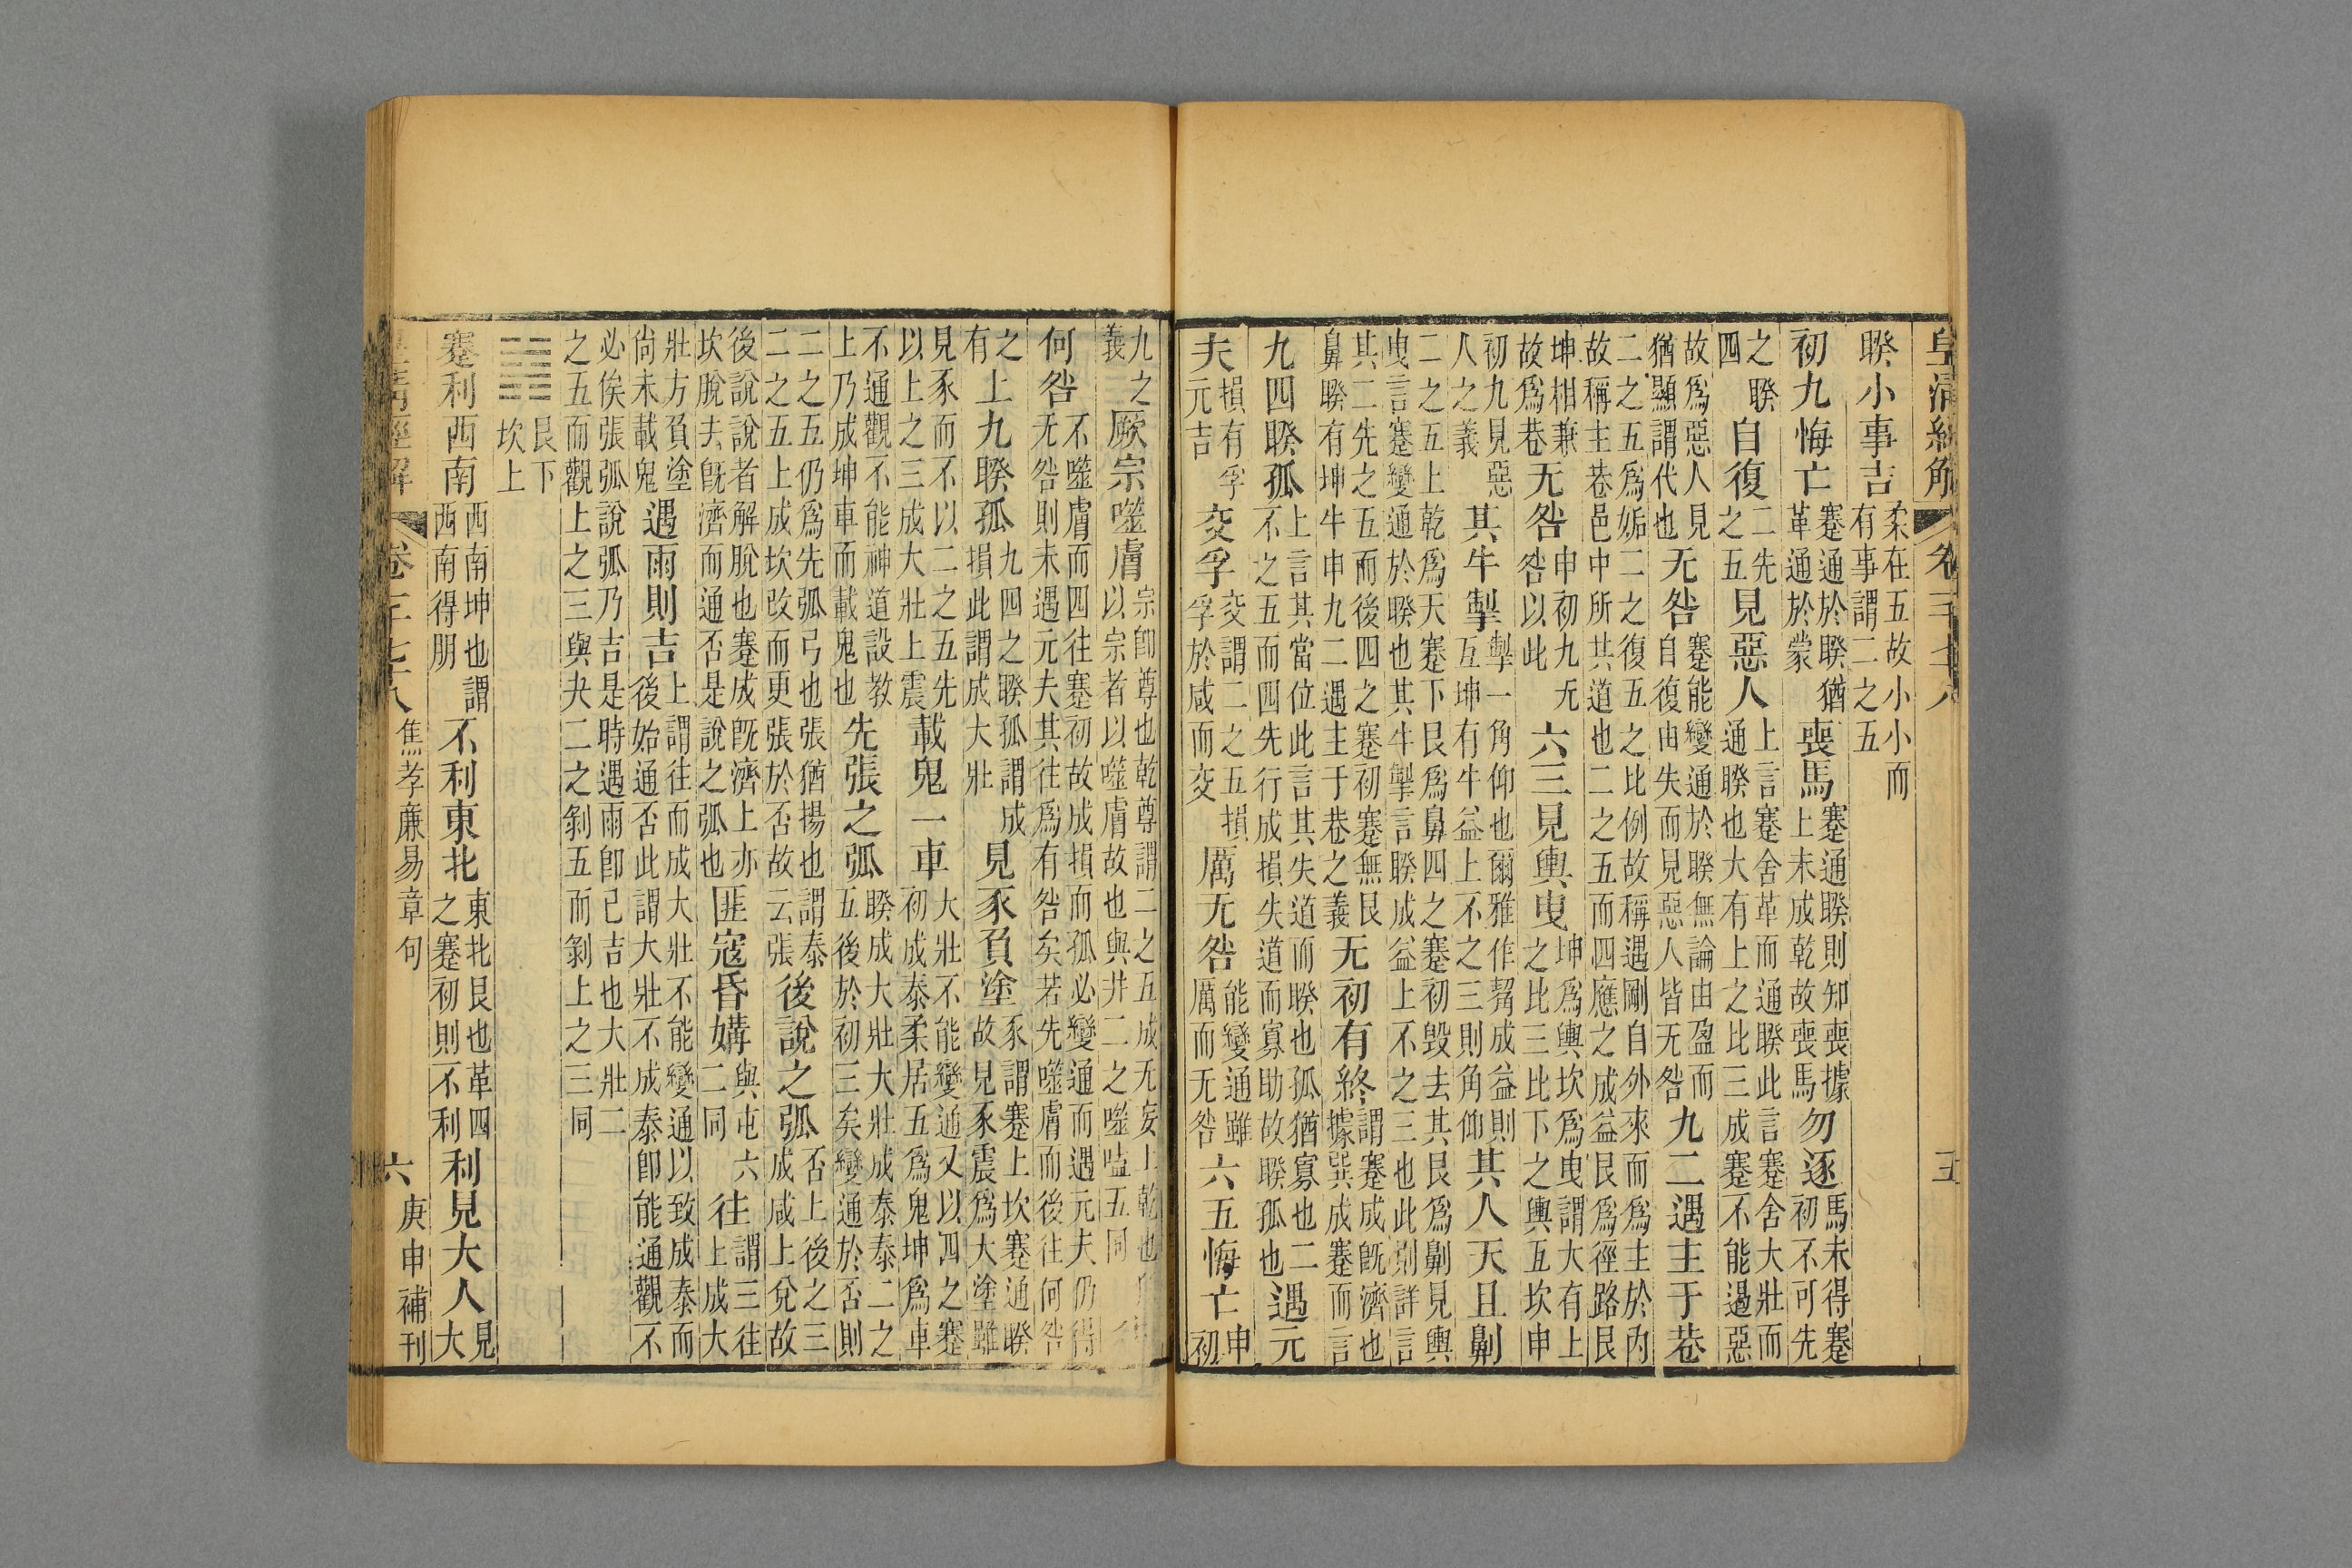 皇清經解 卷三十八 五
睽小事吉柔在五故小小而有事謂二之五
初九悔亡蹇通於睽猶革通於蒙喪馬蹇通睽則知喪據上未成乾故喪馬勿逐馬未得蹇初不可先
之睽四自復二先之五見惡人上言蹇舍革而通睽此言蹇舍大壯而通睽也大有上之比三成蹇不能遏惡
故爲惡人見猶顯謂代也无咎蹇能變通於睽無論由盈而自復由失而見惡人皆无咎九二遇主于巷
二之五爲姤二之復五之比例故稱遇剛自外來而爲主於內故稱主巷邑中所其道也二之五而四應之成益艮爲徑路艮
坤相兼故爲巷无咎申初九无咎以此六三見輿曳坤爲輿坎爲曳謂大有上之比三比下之輿五坎申
初九見惡人之義其牛掣掣一角仰也爾雅作觢成益則互坤有牛益上不之三則角仰其人天且劓
二之五上乾爲天蹇下艮爲鼻四之蹇初毁去其艮爲劓見輿曳言蹇變通於睽也其牛掣言睽成益上不之三也此則詳言
其二先之五而後四之蹇初蹇無艮鼻睽有坤牛申九二遇主于巷之義无初有終謂蹇成既濟也據巽成蹇而言
九四睽孤上言其當位此言其失道而睽也孤猶寡也二不之五而四先行成損失道而寡助故睽孤也遇元
夫損有孚元吉交孚交謂二之五損孚於咸而交厲无咎能變通雖厲而无咎六五悔亡申初
九之義厥宗噬膚宗卽尊也乾尊謂二之五成无妄上乾也以宗者以噬膚故也與井二之噬嗑五同
何咎不噬膚而四往蹇初故成損而孤必變通而遇元夫仍得无咎則未遇元夫其往爲有咎矣若先噬膚而後往何咎
之有上九睽孤九四之睽孤謂成損此謂成大壯見豕負塗豕謂蹇上坎蹇通睽故見豕震爲大塗雖
見豕而不以二之五先以上之三成大壯上震載鬼一車大壯不能變通又以四之蹇初成泰柔居五爲鬼坤爲車
不通觀不能神道設教上乃成坤車而載鬼也先張之弧睽成大壯大壯成泰泰二之五後於初三矣變通於否則
二之五仍爲先弧弓也張猶揚也謂泰二之五上成坎改而更張於否故云張後說之弧否上後之三成咸上兌故
後說說者解脫也蹇成既濟上亦坎脫去既濟而通否是說之弧也匪寇昏媾與屯六二同往謂三往上成大
壯方負塗尙未載鬼遇雨則吉上謂往而成大壯不能變通以致成泰而後始通否此謂大壯不成泰卽能通觀不
必俟張弧說弧乃吉是時遇雨卽已吉也大壯二之五而觀上之三與夬二之剝五而剝上之三同
䷦艮下坎上
蹇利西南西南坤也謂西南得朋不利東北東北艮也革四之蹇初則不利利見大人見大
皇清經解 卷三十八 焦孝廉易章句 六 庚申補刊